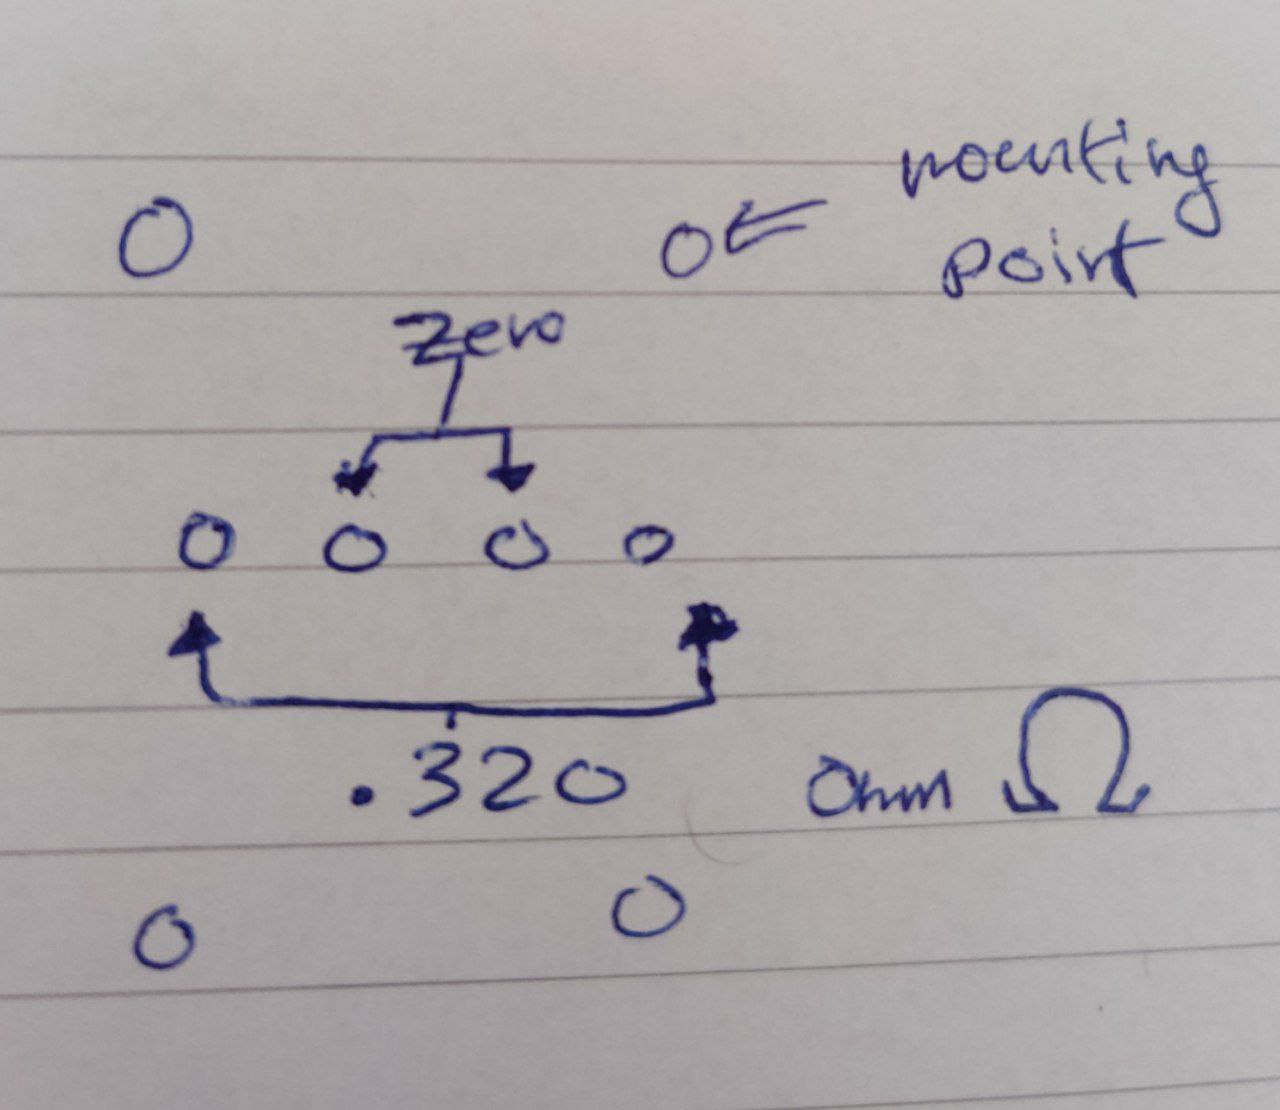 mounting
point
Zero
.320 Ohm Ω